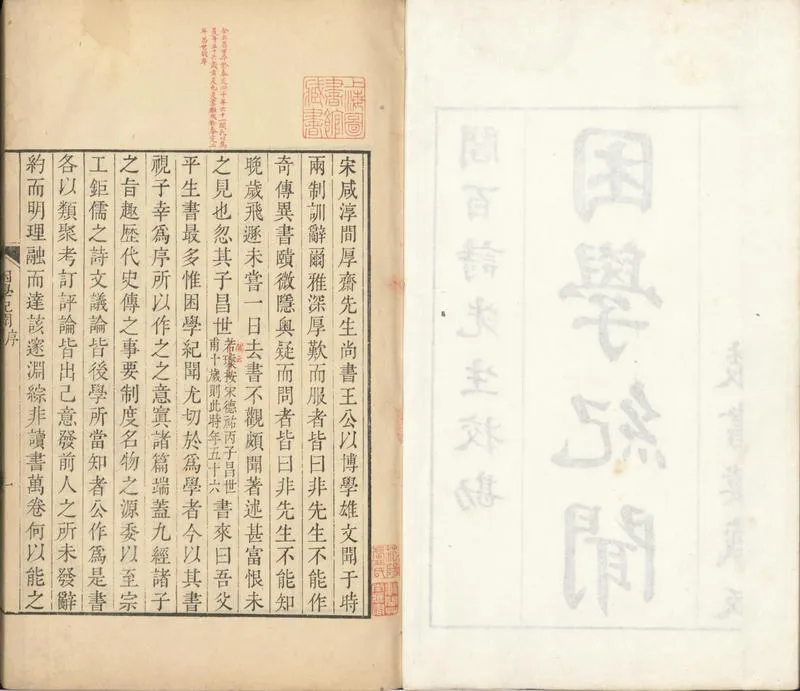 困學紀聞
閻百詩先生校勘
上海圖
書館
藏書
宋咸淳間厚齋先生尚書王公以博學雄文聞于時
兩制訓辭爾雅深厚歎而服者皆曰非先生不能作
奇傳異書賾微隱奥疑而問者皆曰非先生不能知
晚歲飛遯未嘗一日去書不觀頗聞著述甚富恨未
之見也忽其子昌世若璩按宋德祐丙子昌世甫十歲則此時年五十六書來曰吾父
平生書最多惟困學紀聞尤切於爲學者今以其書
視子幸爲序所以作之之意寘諸篇端蓋九經諸子
之旨趣歷代史傳之事要制度名物之源委以至宗
工鉅儒之詩文議論皆後學所當知者公作爲是書
各以類聚考訂評論皆出己意發前人之所未發辭
約而明理融而達該邃淵綜非讀書萬卷何以能之
困學紀聞序
一